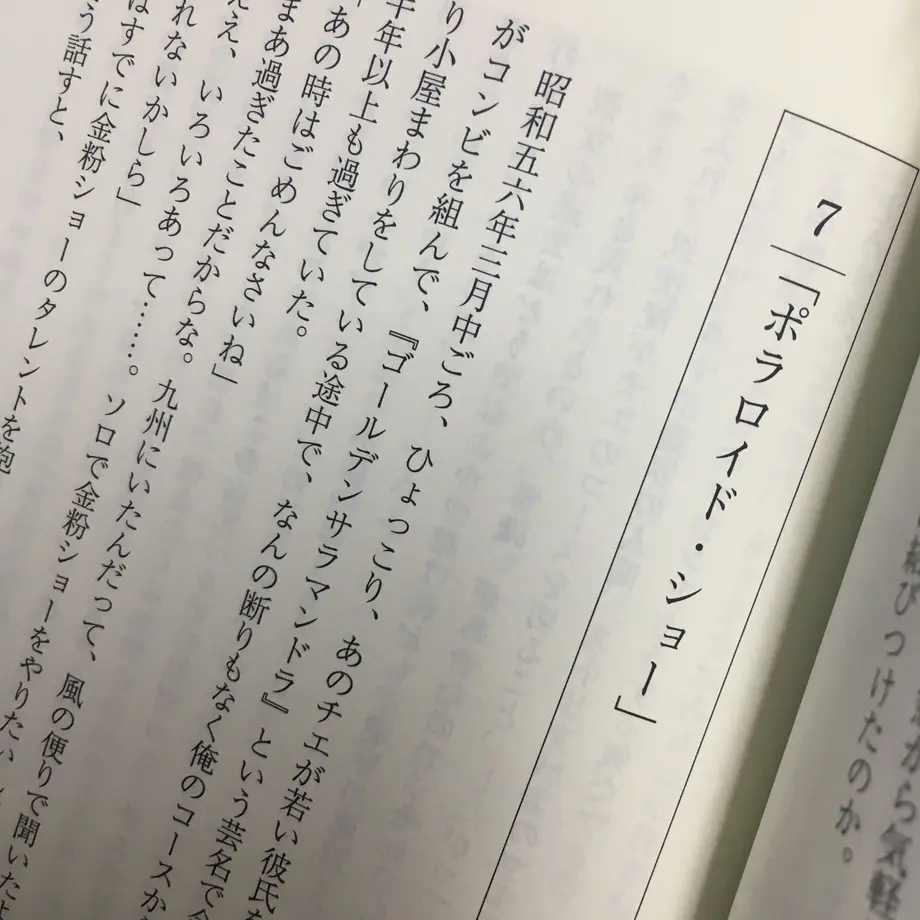 結びつけたのか。
から気軽
7 「ポラロイド・ショー」
昭和五六年三月中ごろ、ひょっこり、あのチエが若い彼氏を
がコンビを組んで、『ゴールデンサラマンドラ』という芸名で
り小屋まわりをしている途中で、なんの断りもなく俺のコースか
年以上も過ぎていた。
「あの時はごめんなさいね」
まあ過ぎたことだからな。九州にいたんだって、風の便りで聞いたよ
ええ、いろいろあって……。ソロで金粉ショーをやりたい
れないかしら」
はすでに金粉ショーのタレントを抱
う話すと、